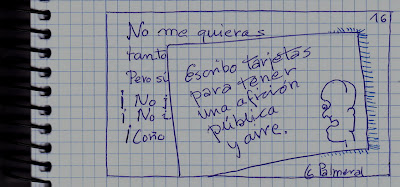 16
No me quieras
tanto
Pero si
¡ No i
¡ No i
¡Coño
Escribo tarjetas
para tener
una afición
pública
y aire.
G Palmeral